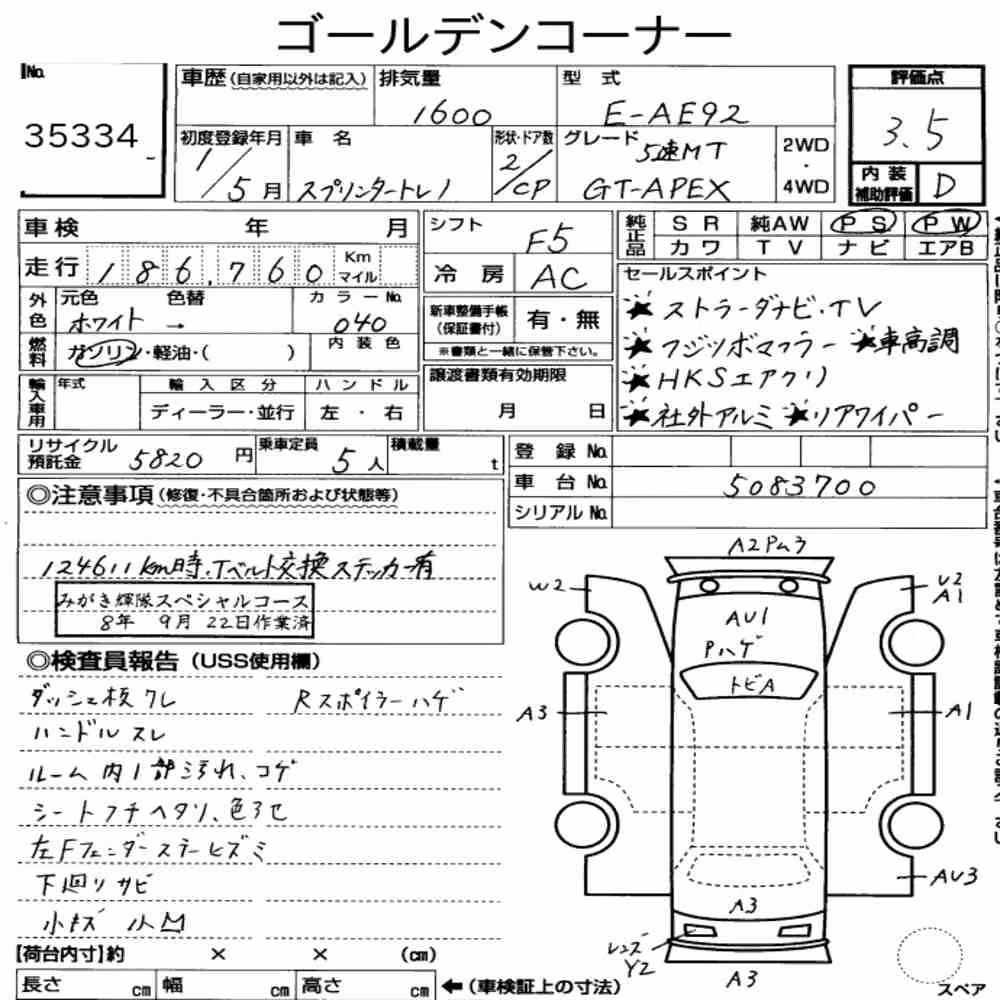 ゴールデンコーナー
No.
35334
車歴（自家用以外は記入）
排気量
1600
型 式
E-AE92
評価点
3.5
初度登録年月
1/5月
車 名
スプリンタートレノ
形状・ドア数
2/CP
グレード
5速MT
GT-APEX
2WD
・
4WD
内 装
補助評価
D
車検 年 月
走行 186,760 Km
マイル
シフト
F5
冷 房
AC
純正品
SR 純AW PS PW
カワ TV ナビ エアB
外色
元色 色替
ホワイト →
カラーNo.
040
燃料
ガソリン・軽油・( )
内 装 色
新車整備手帳
（保証書付）
有・無
※書類と一緒に保管下さい。
セールスポイント
★ストラーダナビ・TV
★フジツボマフラー ★車高調
★HKSエアクリ
★社外アルミ ★リアワイパー
輸入車用
年式
輸 入 区 分
ディーラー・並行
ハ ン ド ル
左 ・ 右
譲渡書類有効期限
月 日
リサイクル
預託金
5820 円
乗車定員
5人
積載量
t
登 録 No.
車 台 No.
5083700
シリアル No.
◎注意事項（修復・不具合箇所および状態等）
124611km時・Tベルト交換ステッカー有
みがき輝隊スペシャルコース
8年 9月 22日作業済
◎検査員報告（USS使用欄）
ダッシュ板ワレ
Rスポイラーハゲ
ハンドルスレ
ルーム内1部汚れ、コゲ
シートフチヘタリ、色アセ
左Fフェンダーステーヒズミ
下廻りサビ
小キズ 小凹
A2Pム3
W2
U2
A1
AU1
Pハゲ
トビA
A3
A1
AU3
A3
レンズ
Y2
A3
スペア
【荷台内寸】約 × × (cm)
長さ cm 幅 cm 高さ cm
←（車検証上の寸法）